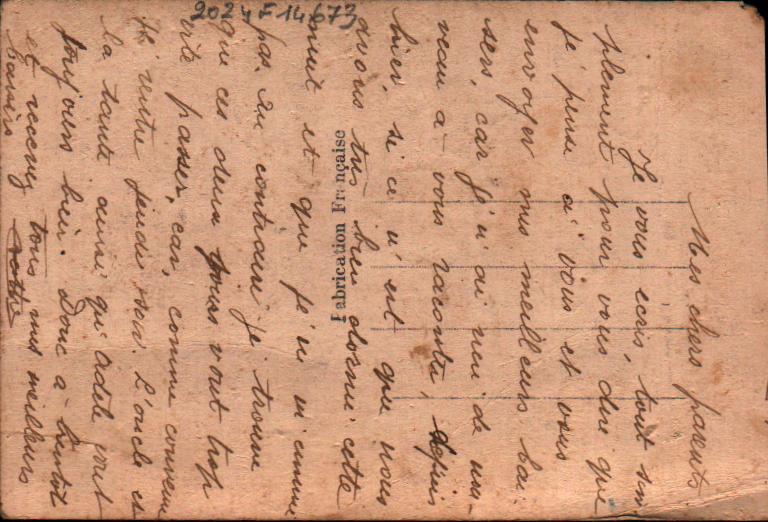 2024 F 14673
Fabrication Française
Mes chers parents
Je vous écris, tout sim-
plement pour vous dire que
je pense à vous et vous
envoyer mes meilleurs bai-
sers, car je n'ai rien de nou-
veau à vous raconter, depuis
hier, si ce n'est que nous
avons très bien dormi cette
nuit et que je ne m'ennuie
pas. Au contraire je trouve
que ces deux jours vont trop
vite passer, car, comme convenu
je rentre jeudi soir. L'oncle et
la tante ainsi qu'Adèle vont
toujours bien. Donc à bientôt
et recevez tous mes meilleurs
baisers